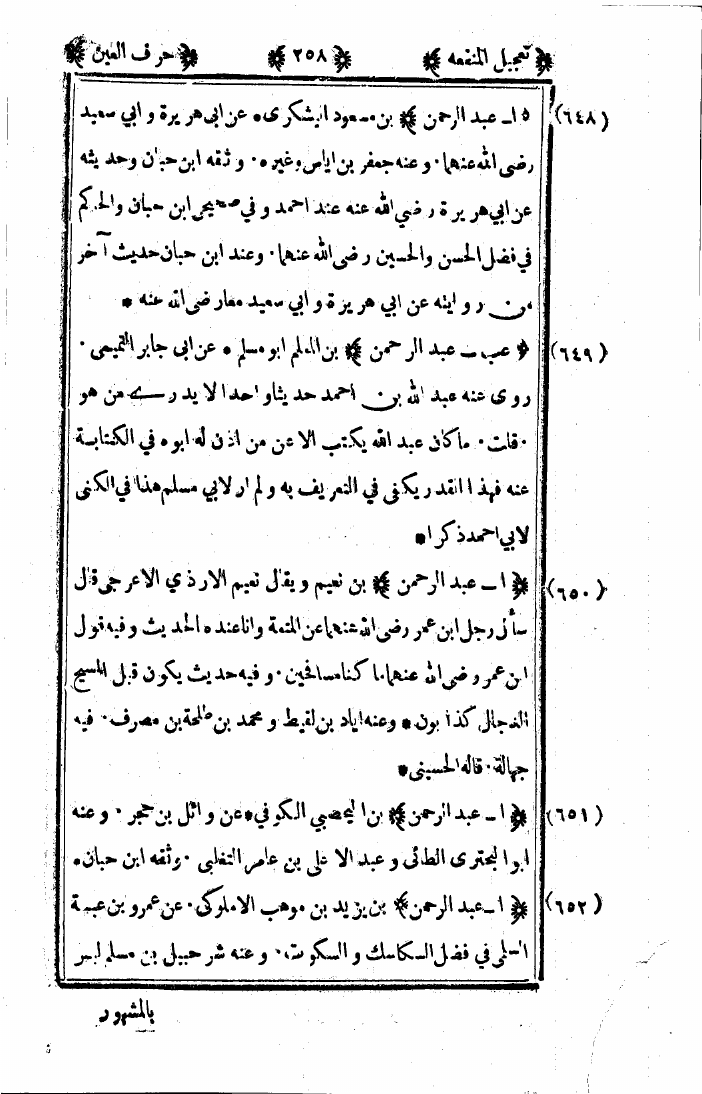 ﴿ تعجيل المنفعه ﴾ ﴿ ٢٥٨ ﴾ ﴿ حرف العين ﴾
(٦٤٨) ﴿ ا ـ عبد الرحمن ﴾ بن مسعود اليشكرى * عن ابى هريرة و ابي سعيد
رضى الله عنهما · و عنه جعفر بن اياس وغيره · وثقه ابن حبان وحديثه
عن ابي هريرة رضي الله عنه عند احمد و في صحيحى ابن حبان والحاكم
في فضل الحسن والحسين رضى الله عنهما · وعند ابن حبان حديث آخر
من روايته عن ابي هريرة و ابي سعيد معارضى الله عنه *
(٦٤٩) ﴿ عب ـ عبد الرحمن ﴾ بن المعلم ابو مسلم * عن ابى جابر التميمى ·
روى عنه عبد الله بن احمد حديثا واحدا لا يدرى من هو
· قلت · ما كان عبد الله يكتب الا عن من اذن له ابوه في الكتابة
عنه فهذا القدر يكفى في التعريف به و لم ار لابي مسلم هذا في الكنى
لابي احمد ذكرا *
(٦٥٠) ﴿ ا ـ عبد الرحمن ﴾ بن نعيم و يقال نعيم الازدي الاعرجى قال
سأل رجل ابن عمر رضى الله عنهما عن المتعة وانا عنده الحديث وفيه قول
ابن عمر رضى الله عنهما ما كنا مسافحين · و فيه حديث يكون قبل المسيح
الدجال كذابون * وعنه اياد بن لقيط و محمد بن طلحة بن مصرف · فيه
جهالة · قاله الحسينى *
(٦٥١) ﴿ ا ـ عبد الرحمن ﴾ بن اليحصبي الكوفي * عن وائل بن حجر · و عنه
ابو البحترى الطائى و عبد الاعلى بن عامر الثعلبى · وثقه ابن حبان *
(٦٥٢) ﴿ ا ـ عبد الرحمن ﴾ بن يزيد بن موهب الاملوكى · عن عمرو بن عبسة
السلمى في فضل السكاسك و السكون · و عنه شرحبيل بن مسلم ليس
بالمشهور